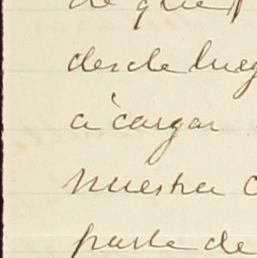 de que
desde lueg
a cargar
nuestra c
parte de